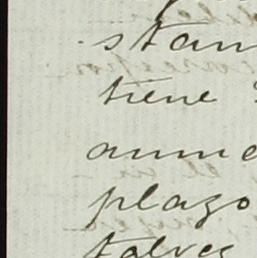 stan
tiene
aume
plazo
talvez